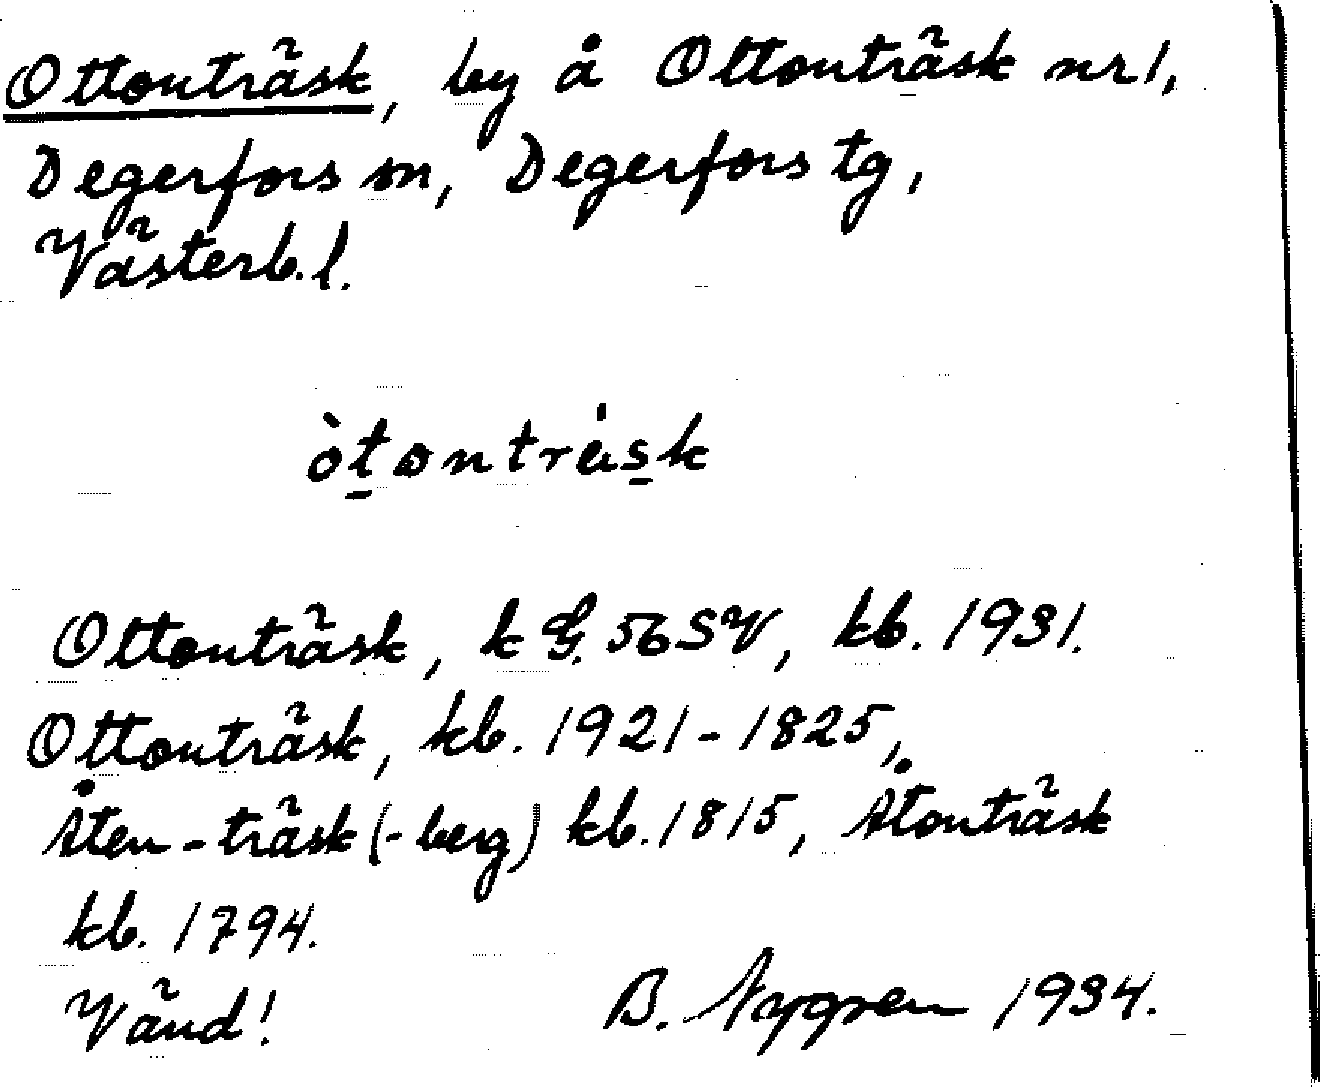 Ottonträsk, by å Ottonträsk nr 1,
Degerfors sn, Degerfors tg,
Västerb. l.
òt̠onträ́s̠k
Ottonträsk, k G. 56 SV, kb. 1931.
Ottonträsk, kb. 1921-1825,
Åten-träsk (-berg) kb. 1815, Åtonträsk
kb. 1794.
Vänd! B. Nygren 1934.